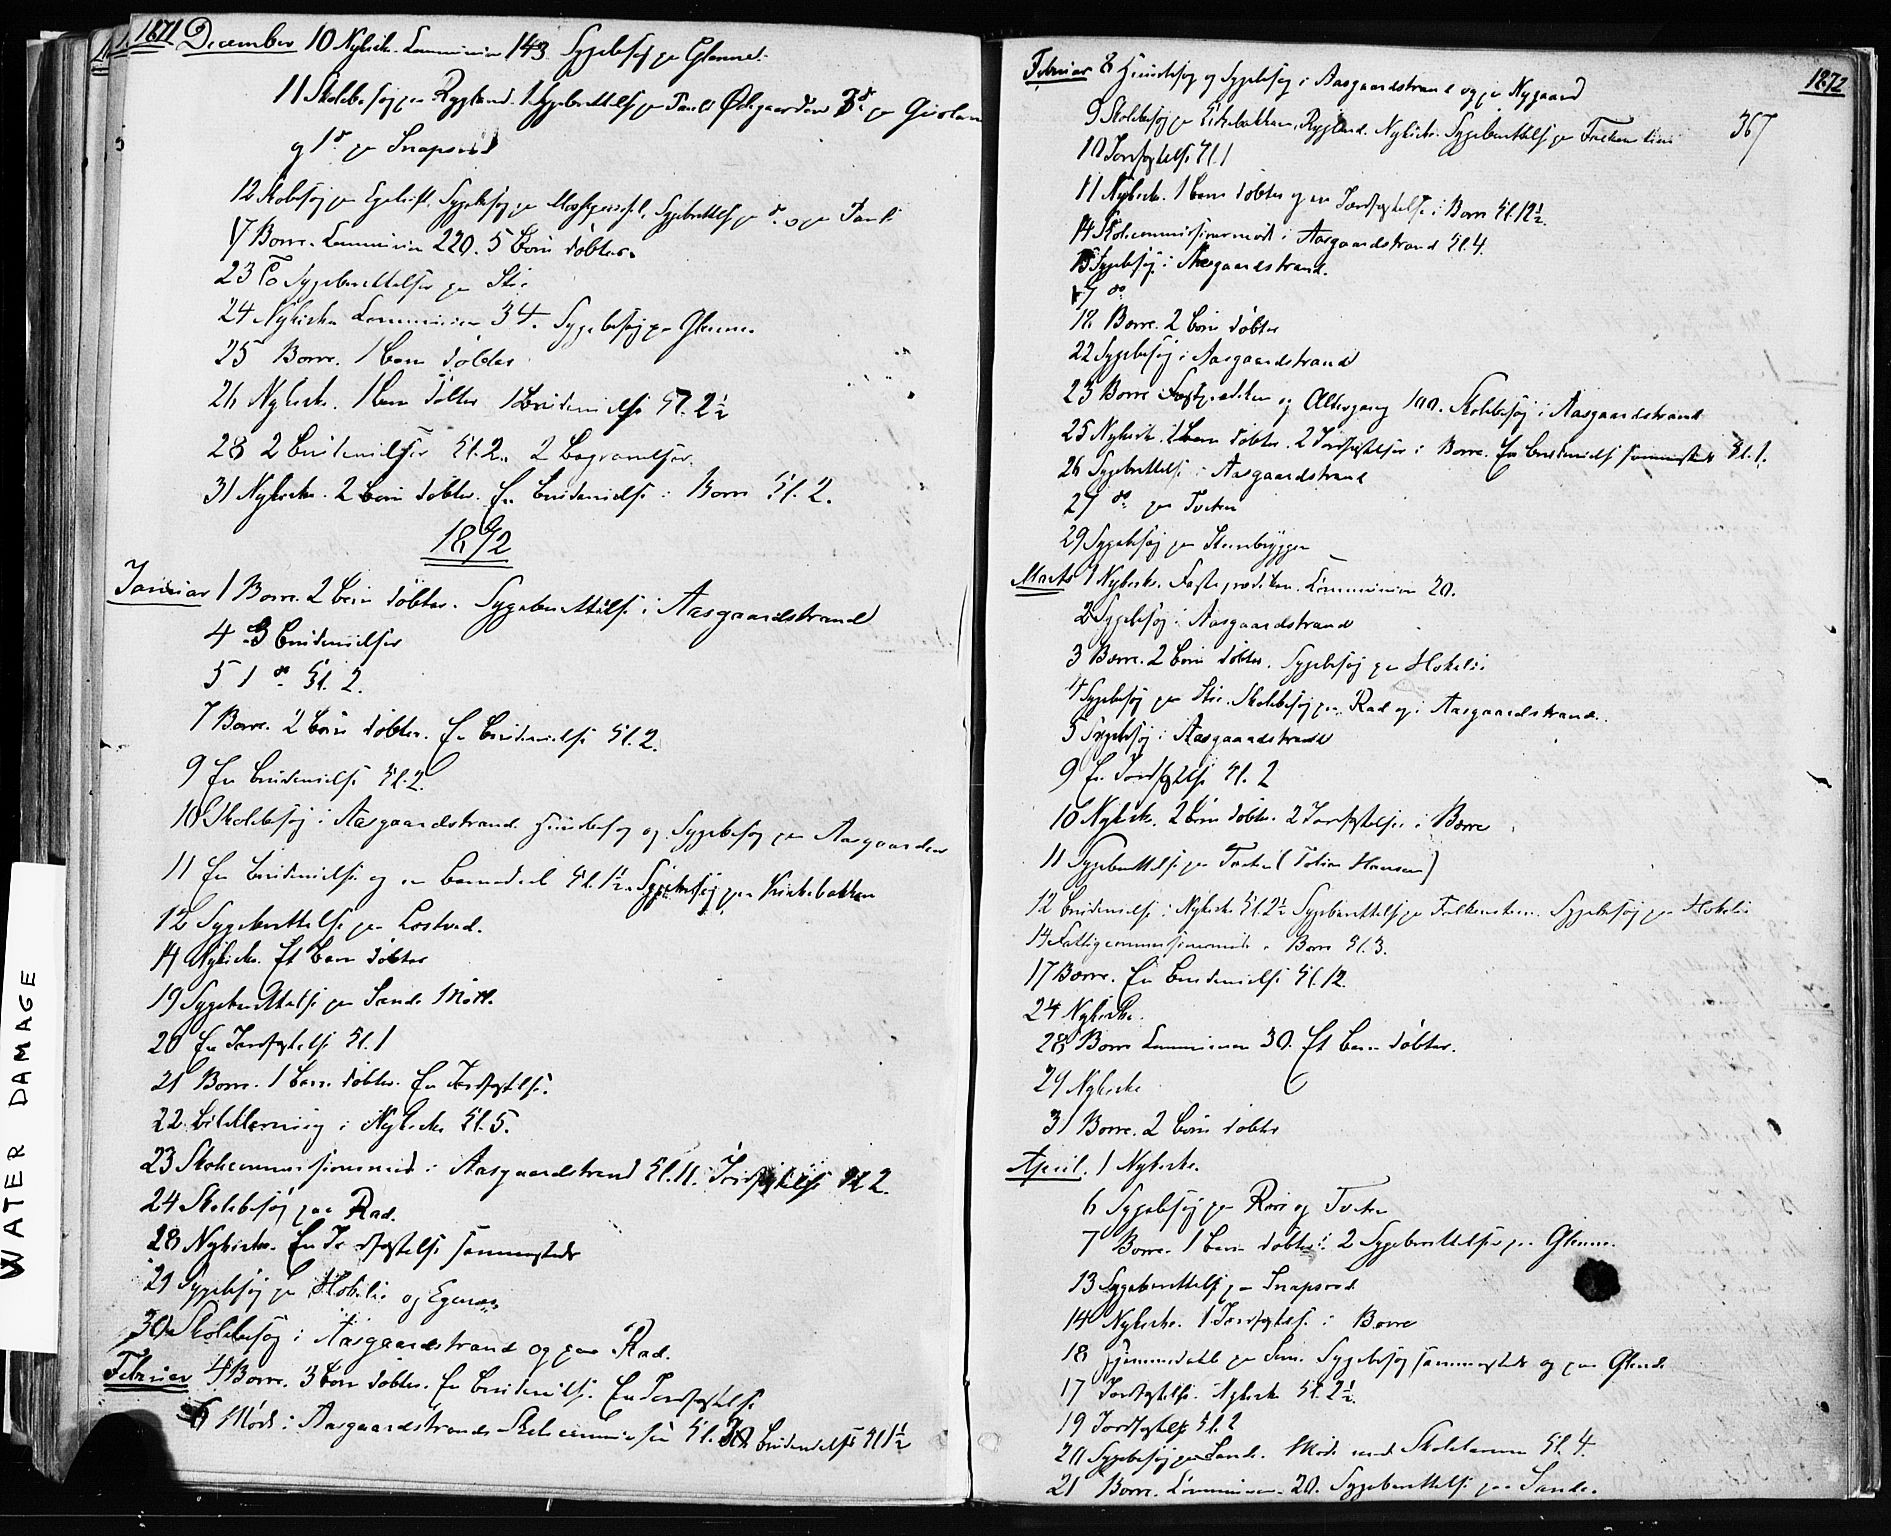 1871 December 10 Nykirke. Communion 143. Sygebesøg paa Glenne.
11 Skolebesøg paa Rygland. 1 Sygeberettelse paa
og 1 do paa Snapsrød
12 Skolebesøg paa Sygebesøg paa Sygeberettelse paa do og paa
17 Borre. Communion 220. 5 Børn døbter.
23 To Sygeberettelser paa Stie
24 Nykirke Communion 34. Sygebesøg paa Glenne.
25 Borre. 1 Barn døbter
26 Nykirke. 1 Barn døbter 1 Brudevielse Kl. 2½
28 2 Brudevielser Kl. 2. 2 Begravelser.
31 Nykirke. 2 Børn døbter. En Brudevielse i Borre Kl. 2.
1872
Januar 1 Borre. 2 Børn døbter. Sygeberettelse i Aasgaardstrand
4 3 Brudevielser
5 1 do Kl. 2.
7 Borre. 2 Børn døbter. En Brudevielse Kl. 2.
9 En Brudevielse Kl. 2.
10 Skolebesøg i Aasgaardstrand. Huusbesøg og Sygebesøg paa Aasgaarden
11 En Brudevielse og en Barnedaab Kl. 1½. Sygebesøg paa Kirkebakken
12 Sygeberettelse paa
14 Nykirke. Et Barn døbter
19 Sygeberettelse paa Sande
20 En Jordfæstelse Kl. 1
21 Borre. 1 Barn døbter. En Jordfæstelse.
22 i Nykirke Kl. 5.
23 Skolecommissionsmøde i Aasgaardstrand Kl. 11. Jordfæstelse Kl. 2.
24 Skolebesøg paa Rad.
28 Nykirke. En Jordfæstelse sammesteds
29 Sygebesøg paa Hokelie og
30 Skolebesøg i Aasgaardstrand og paa Rad.
Februar 4 Borre. 3 Børn døbter. En Brudevielse. En Jordfæstelse
6 Møde i Aasgaardstrands Skolecommission Kl. Brudevielse Kl 1½
Februar 8 Huusbesøg og Sygebesøg i Aasgaardstrand og paa Nygaard
1872
9 Skolebesøg paa Kirkebakken, Rygland. Nykirke. Sygeberettelse paa Falkensteen
367
10 Jordfæstelse Kl. 1
11 Nykirke. 1 Barn døbter og en Jordfæstelse i Borre Kl. 12½.
14 Skolecommissionsmøde i Aasgaardstrand Kl. 4.
15 Sygebesøg i Aasgaardstrand.
17 do
18. Borre. 2 Børn døbter
22 Sygebesøg i Aasgaardstrand
23 Borre Fasteprædiken og Altergang 100. Skolebesøg i Aasgaardstrand
25 Nykirke. 1 Barn døbter. 2 Jordfæstelser i Borre. En Brudevielse sammesteds Kl. 1.
26 Sygeberettelse i Aasgaardstrand
27 do paa Tveten
29 Sygebesøg paa Steenbryggen
Marts 1 Nykirke. Fasteprædiken. Communion 20.
2 Sygebesøg i Aasgaardstrand
3 Borre. 2 Børn døbter. Sygebesøg paa Hokelie
4 Sygebesøg paa Stie. Skolebesøg paa Rad og i Aasgaardstrand.
5 Sygebesøg i Aasgaardstrand
9 En Jordfæstelse Kl. 2
10 Nykirke. 2 Børn døbter. 2 Jordfæstelser i Borre
11 Sygeberettelse paa Tveten (Hansen)
12 Brudevielse i Nykirke Kl. 2½ Sygeberettelse paa Falkensteen. Sygebesøg paa Hokelie
14 Fattigcommissionsmøde i Borre Kl. 3.
17 Borre. En Brudevielse Kl. 12.
24 Nykirke.
28 Borre Communion 30. Et Barn døbter.
29 Nykirke
31 Borre. 2 Børn døbter
April. 1 Nykirke.
6 Sygebesøg paa Røre og Tveten
7 Borre. 1 Barn døbter. 2 Sygeberettelser paa Glenne.
13 Sygeberettelse paa Snapsrød
14 Nykirke. 1 Jordfæstelse i Borre
18 Hjemmedaab paa Sem. Sygebesøg sammesteds og paa Glende
17 Jordfæstelse. Nykirke Kl. 2½.
19 Jordfæstelse Kl. 2
20 Sygebesøg paa Sande. Møde med Skolelærerne Kl. 4.
21 Borre. Communion. 20. Sygeberettelse paa Sande.
WATER DAMAGE